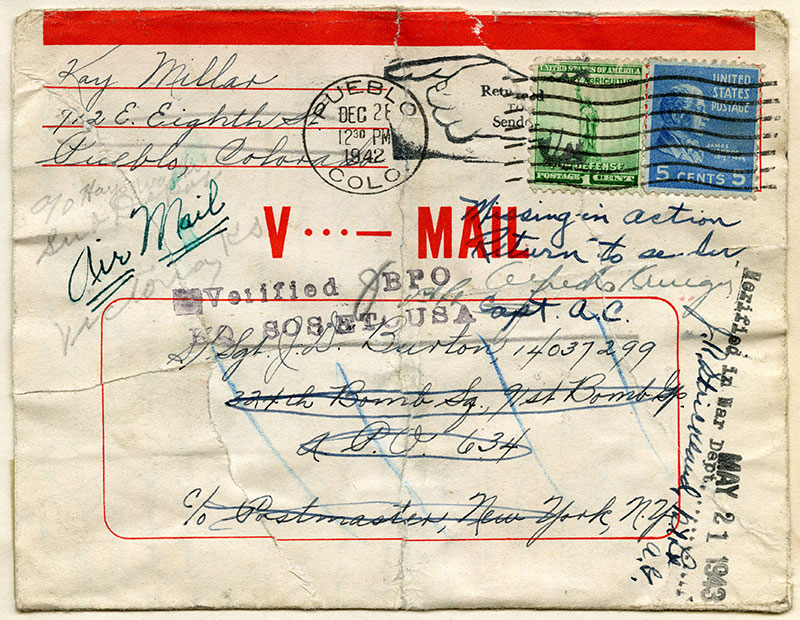 Kay Millar
912 E. Eighth St
Pueblo Colorado
PUEBLO
DEC 26
12 30 PM
1942
COLO.
Returned
To
Sender
UNITED STATES OF AMERICA
AGRICULTURE
DEFENSE
POSTAGE 1 CENT
UNITED
STATES
POSTAGE
JAMES
5 CENTS 5
Air Mail
Victoria KS
V ···— MAIL
Missing in action
Return to sender
Capt. A.C.
Vetified BPO
HQ SOS ET USA
S/Sgt. J. D. Burton, 14037299
324th Bomb Sq., 91st Bomb Gp.
A.P.O. 634
c/o Postmaster, New York, N.Y.
Verified in War Dept.
MAY 21 1943